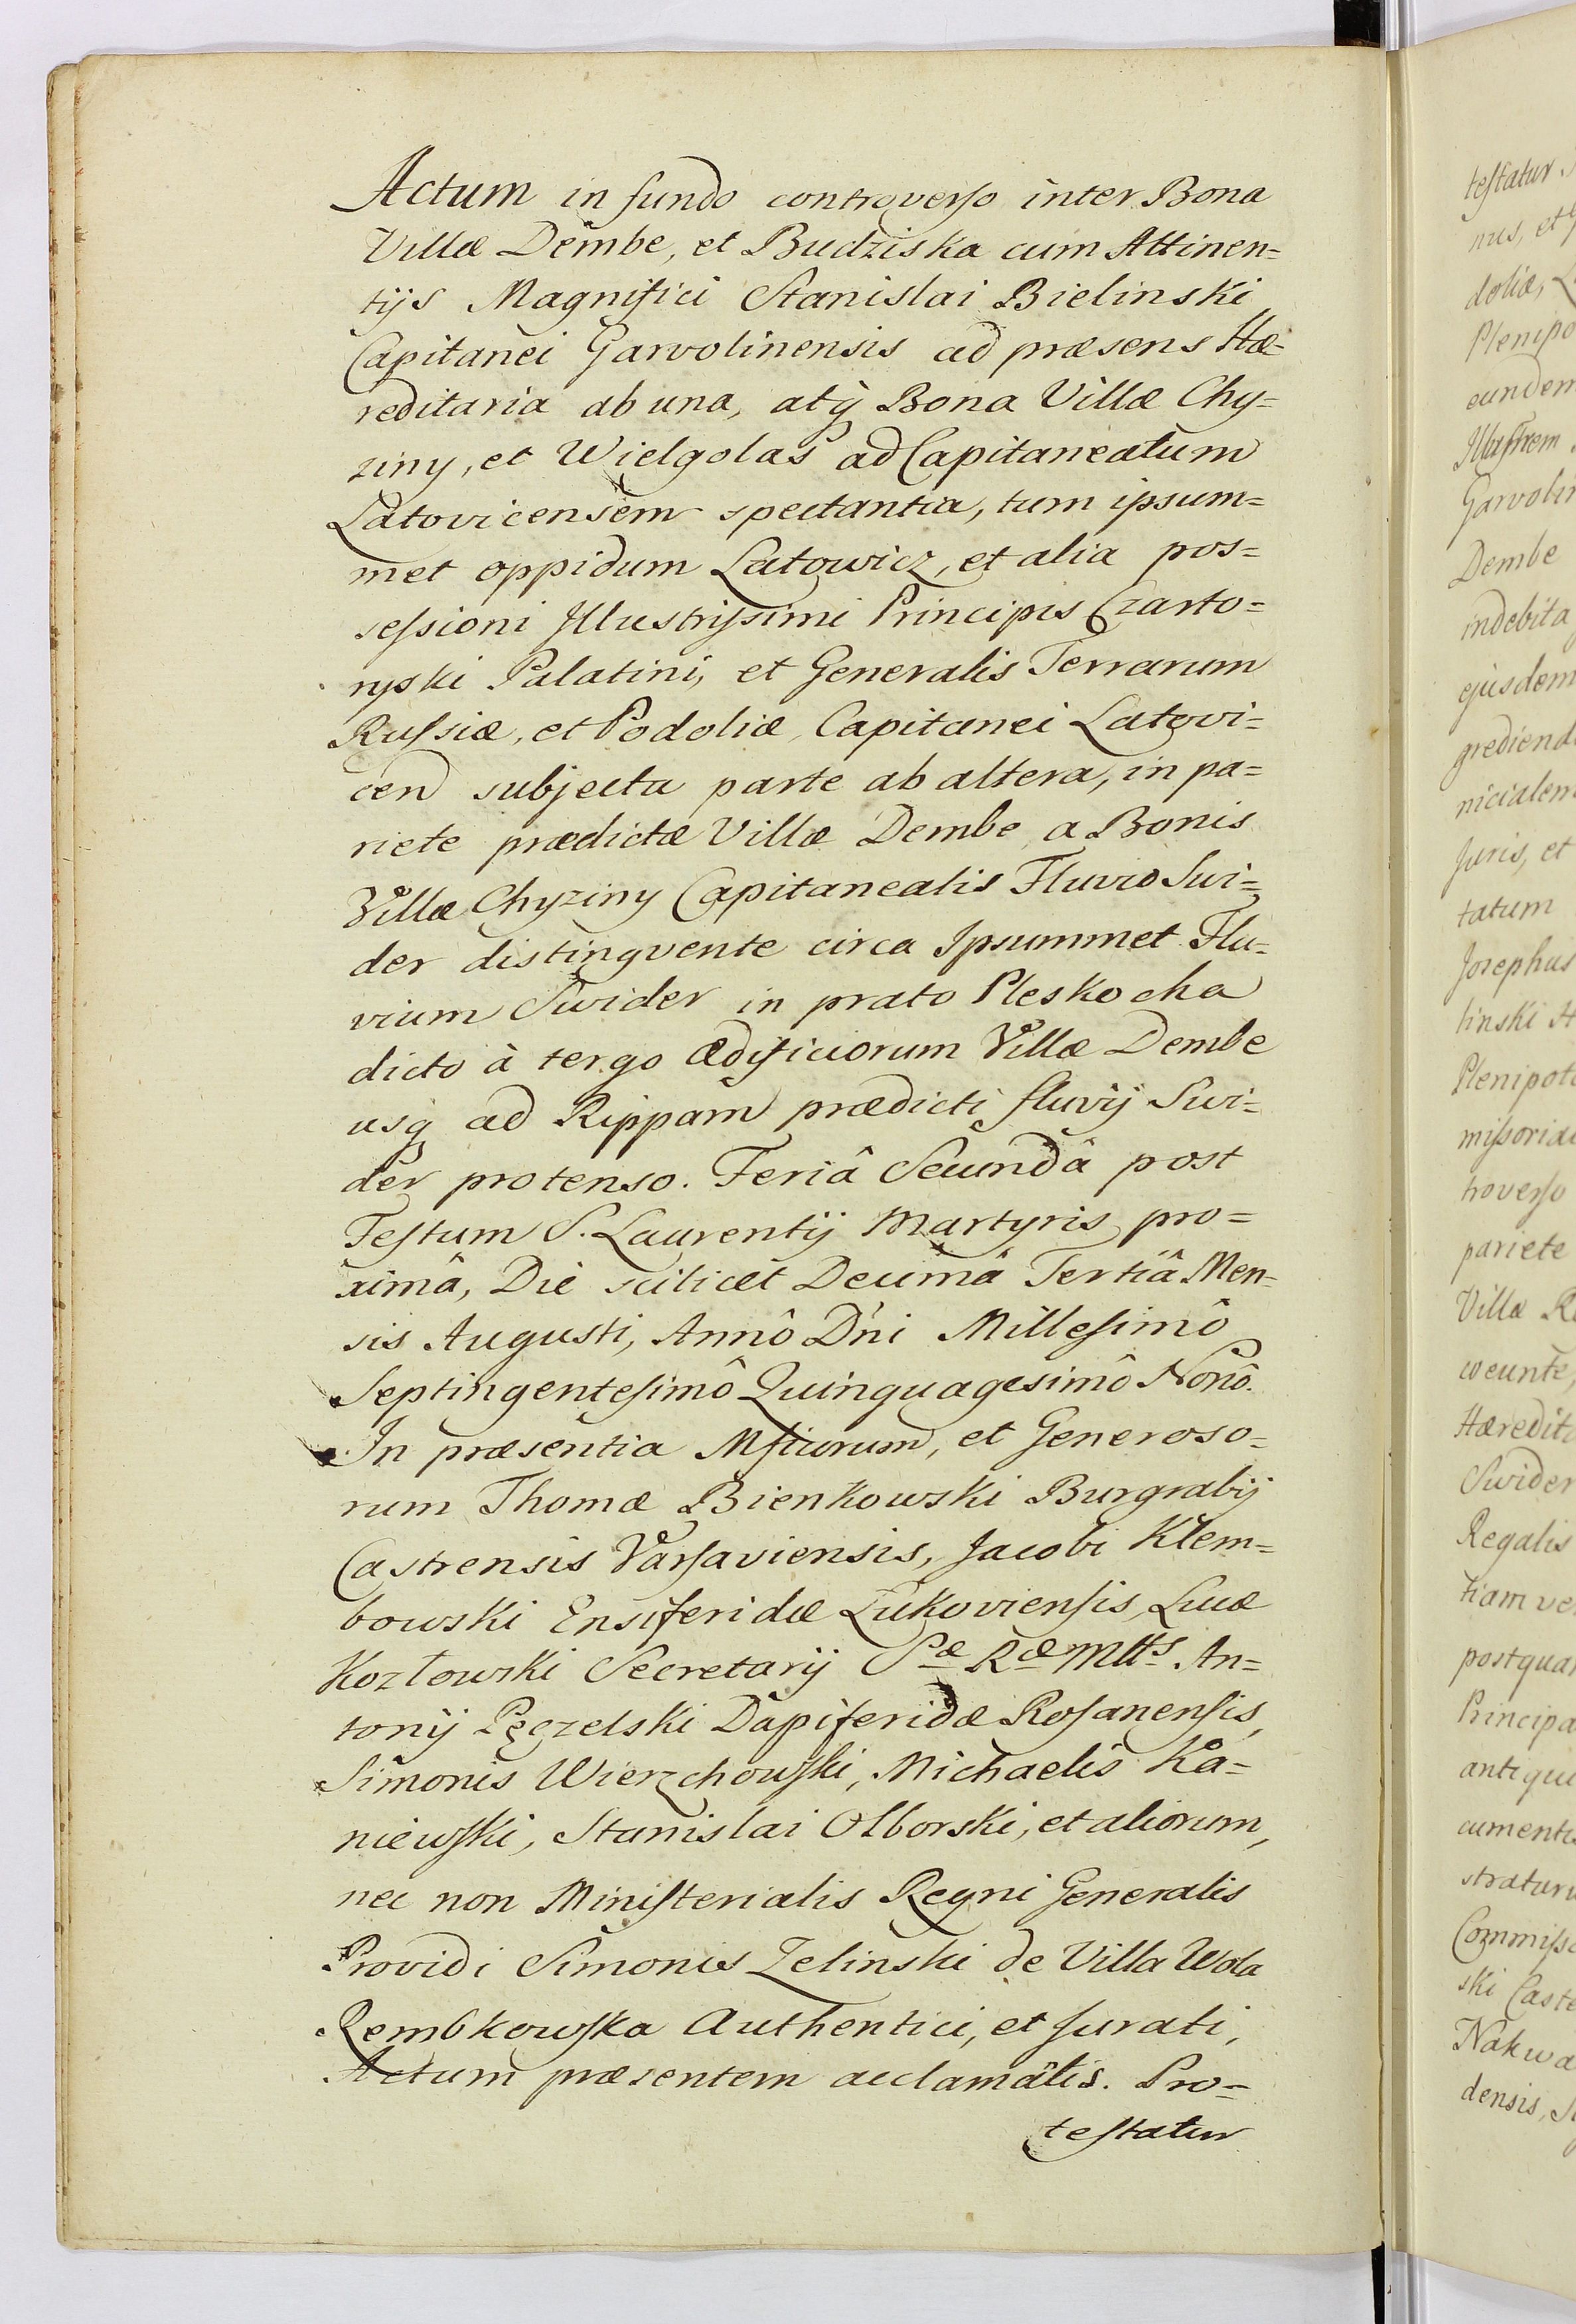 Actum in fundo controverso inter Bona
Villæ Dembe, et Budziska cum Attinen=
tijs Magnifici Stanislai Bielinski
Capitanei Garvolinensis ad præsens Hæ=
reditaria ab una, atq̃ Bona Villæ Chy=
ziny, et Wielgolas ad Capitaneatum
Latovicensem spectantia, tum ipsum=
met oppidum Latowicz, et alia pos=
sessioni Jllustrissimi Principis Czarto=
ryski Palatini, et Generalis Terrarum
Russiæ, et Podoliæ, Capitanei Latovi=
cen subjecta parte ab altera, in pa=
riete prædictæ Villæ Dembe a Bonis
Villæ Chyziny Capitanealis Fluvio Swi=
der distingvente circa Ipsummet Flu=
vium Swider in prato Pleskocha
dicto à tergo Ædificiorum Villæ Dembe
usq ad Rippam prædicti fluvij Swi=
der protenso. Feriâ Secundâ post
Festum S. Laurentij Martyris pro=
ximâ, Die scilicet Decimâ Tertiâ Men=
sis Augusti, Annô D'ni Millesimô
Septingentesimô Quinquagesimô Nonô.
In præsentia Mficorum, et Generoso=
rum Thomæ Bienkowski Burgrabij
Castrensis Varsaviensis, Jacobi Klem=
bowski Ensiferidæ Lukoviensis, Lucæ
Kozłowski Secretarij Sæ Ræ Mtts An=
tonij Pęczelski Dapiferidæ Rosanensis,
Simonis Wierzchowski, Michaelis Ka=
niewski, Stanislai Olborski, et aliorum,
nec non Ministerialis Regni Generalis
Providi Simonis Zelinski de Villa Wola
Rembkowska Authentici, et Jurati,
Actum præsentem acclamãtis. Pro=
testatur
testatur
nus, et
doliæ,
Plenipo
eundem
Jllustrem
Garvolin
Dembe
indebita
ejusdem
grediend
nicialem
Juris, et
tatum
Josephus
linski
Plenipot
missoria
troverso
pariete
Villæ
weunte,
Hæredit
Swider
Regalis
tiam ve
postqua
Principa
antiqui
cumenti
stratur
Commissa
ski Caste
Nakwa
densis,